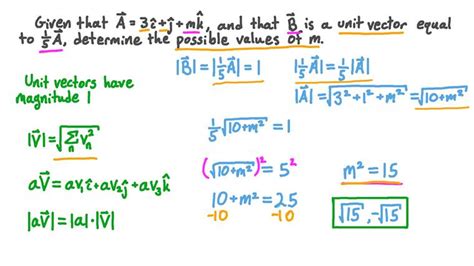 Given that A⃗ = 3î + ĵ + mk̂, and that B⃗ is a unit vector equal
to 1/5 A⃗, determine the possible values of m.
Unit vectors have
magnitude 1
|V⃗| = √(Σₙ vₙ²)
aV⃗ = av₁î + av₂ĵ + av₃k̂
|aV⃗| = |a|·|V⃗|
|B⃗| = |1/5 A⃗| = 1
1/5 √(10+m²) = 1
(√(10+m²))² = 5²
10 + m² = 25
-10 -10
|1/5 A⃗| = 1/5 |A⃗|
|A⃗| = √(3² + 1² + m²) = √(10+m²)
m² = 15
√15, -√15